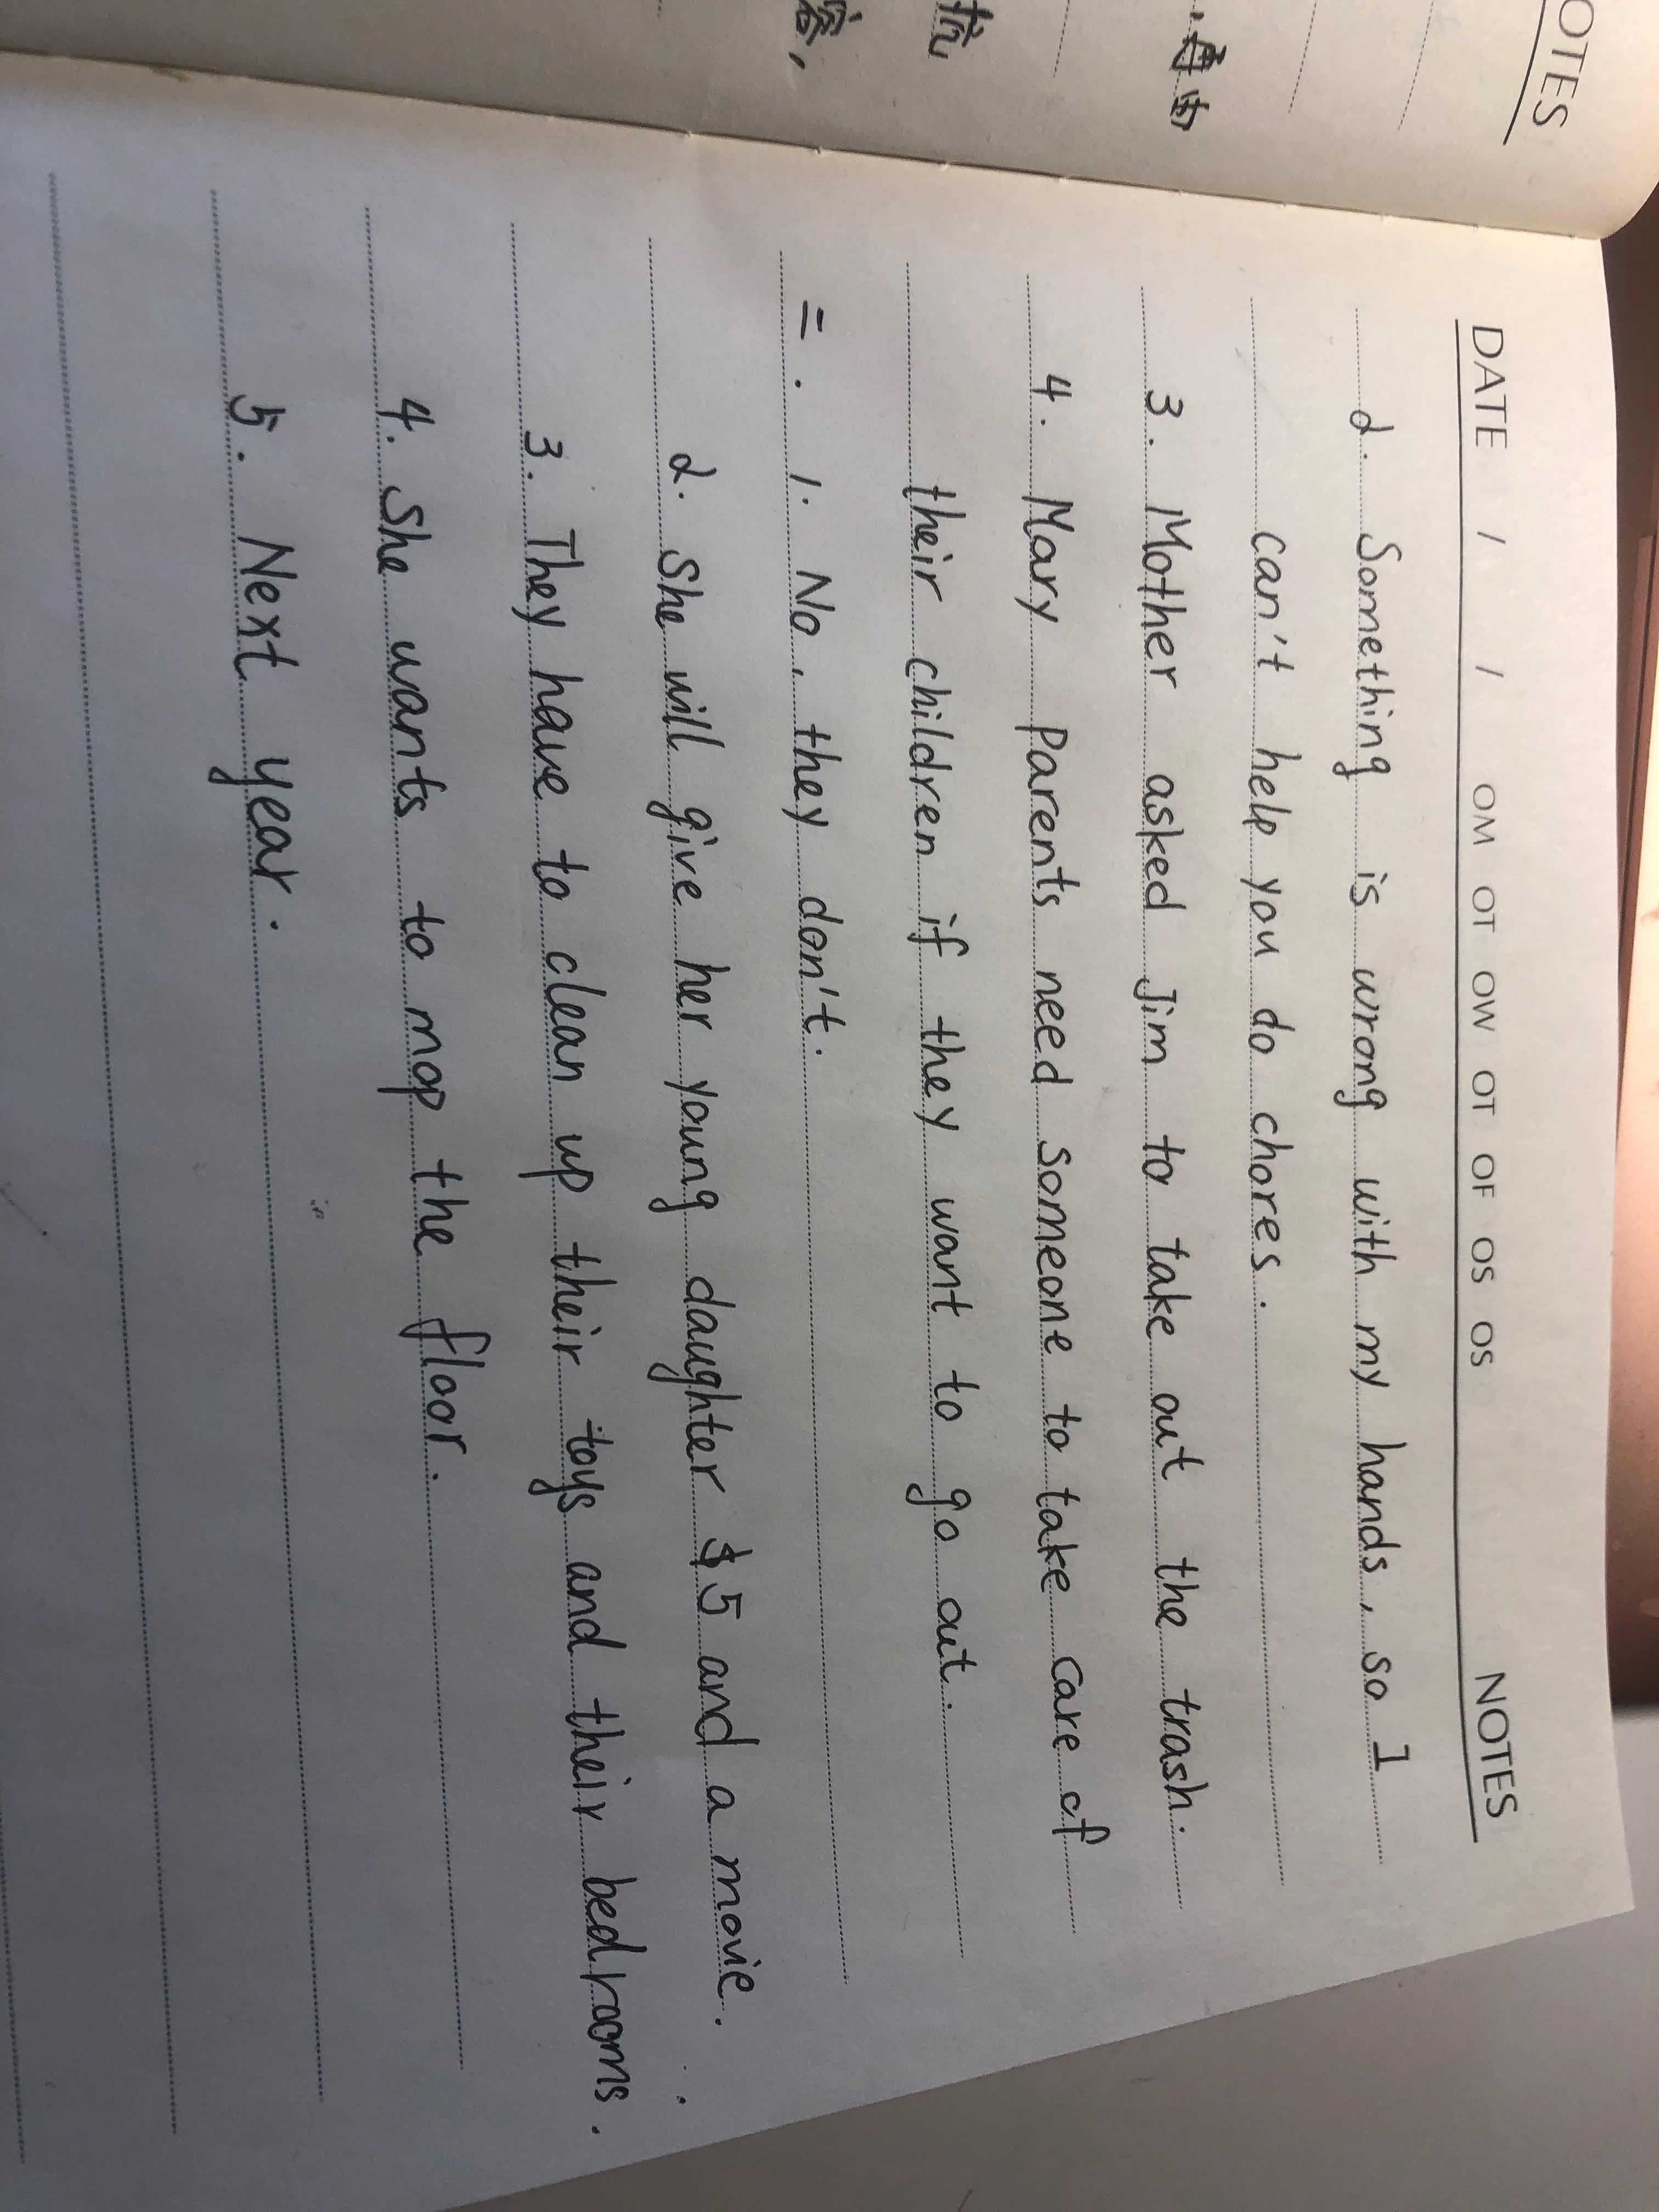 OTES
DATE / / OM OT OW OT OF OS OS NOTES
2. Something is wrong with my hands, so I
can't help you do chores.
3. Mother asked Jim to take out the trash.
4. Mary Parents need someone to take care of
their children if they want to go out.
二. 1. No, they don't.
2. She will give her young daughter $5 and a movie.
3. They have to clean up their toys and their bedrooms.
4. She wants to mop the floor.
5. Next year.